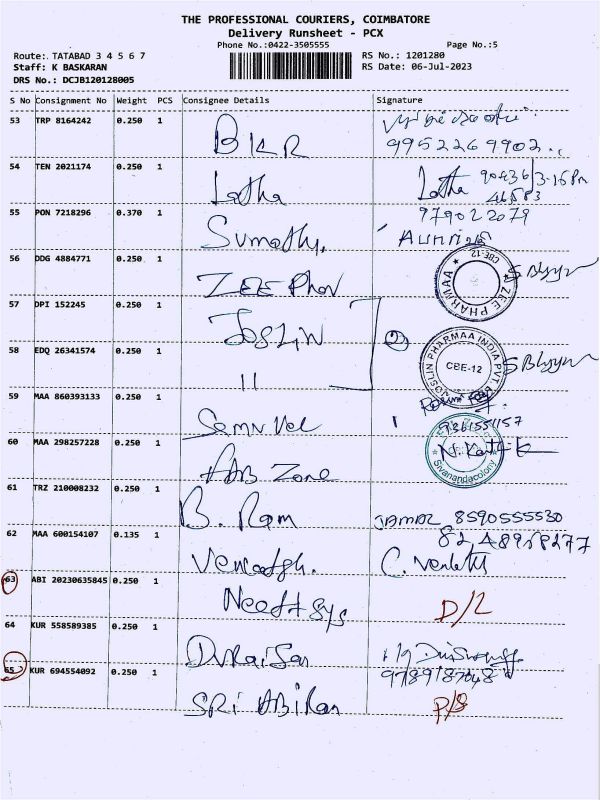 THE PROFESSIONAL COURIERS, COIMBATORE
Delivery Runsheet - PCX
Phone No.:0422-3505555
Page No.:5
Route: TATABAD 3 4 5 6 7
RS No.: 1201280
Staff: K BASKARAN
RS Date: 06-Jul-2023
DRS No.: DCJB120128005
S No Consignment No Weight PCS Consignee Details Signature
53 TRP 8164242 0.250 1
BKR
9952269902
54 TEN 2021174 0.250 1
Latha Latha 90436 3-15 Pm
46583
55 PON 7218296 0.370 1
979022079
Sumathy.
56 DDG 4884771 0.250 1
ZEE Phar
ZEE PHARMAA CBE-12
57 DPI 152245 0.250 1
JOSLIN
58 EDQ 26341574 0.250 1
11
JOSLIN PHARMAA INDIA PVT. CBE-12
59 MAA 860393133 0.250 1
9361551157
60 MAA 298257228 0.250 1
Zone
Sivanandacolony
61 TRZ 210008232 0.250 1
B. Ram 8590555530
62 MAA 600154107 0.135 1
8248958277
63 ABI 20230635845 0.250 1
D/L
64 KUR 558589385 0.250 1
65 KUR 694554092 0.250 1
9789187048
SRi